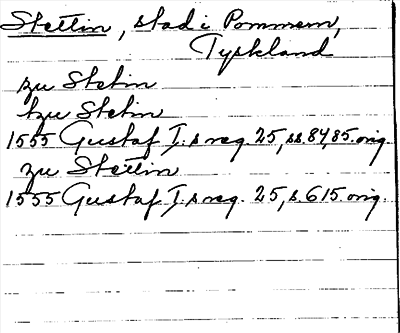 Stettin, stad i Pommern,
Tyskland
zu Stetin
tzu Stetin
1555 Gustaf I:s reg. 25, ss. 84 85. orig.
zu Stettin
1555 Gustaf I:s reg. 25, s. 615. orig.